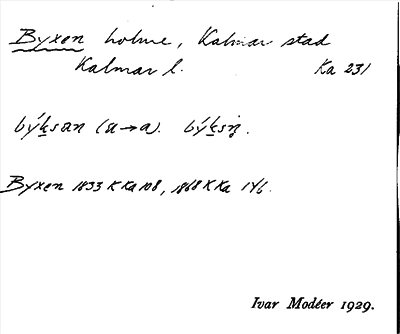 Byxen holme, Kalmar stad
Kalmar l. Ka 231
býksan (a→a). býksn̥.
Byxen 1833 K Ka 108, 1868 K Ka 146.
Ivar Modéer 1929.